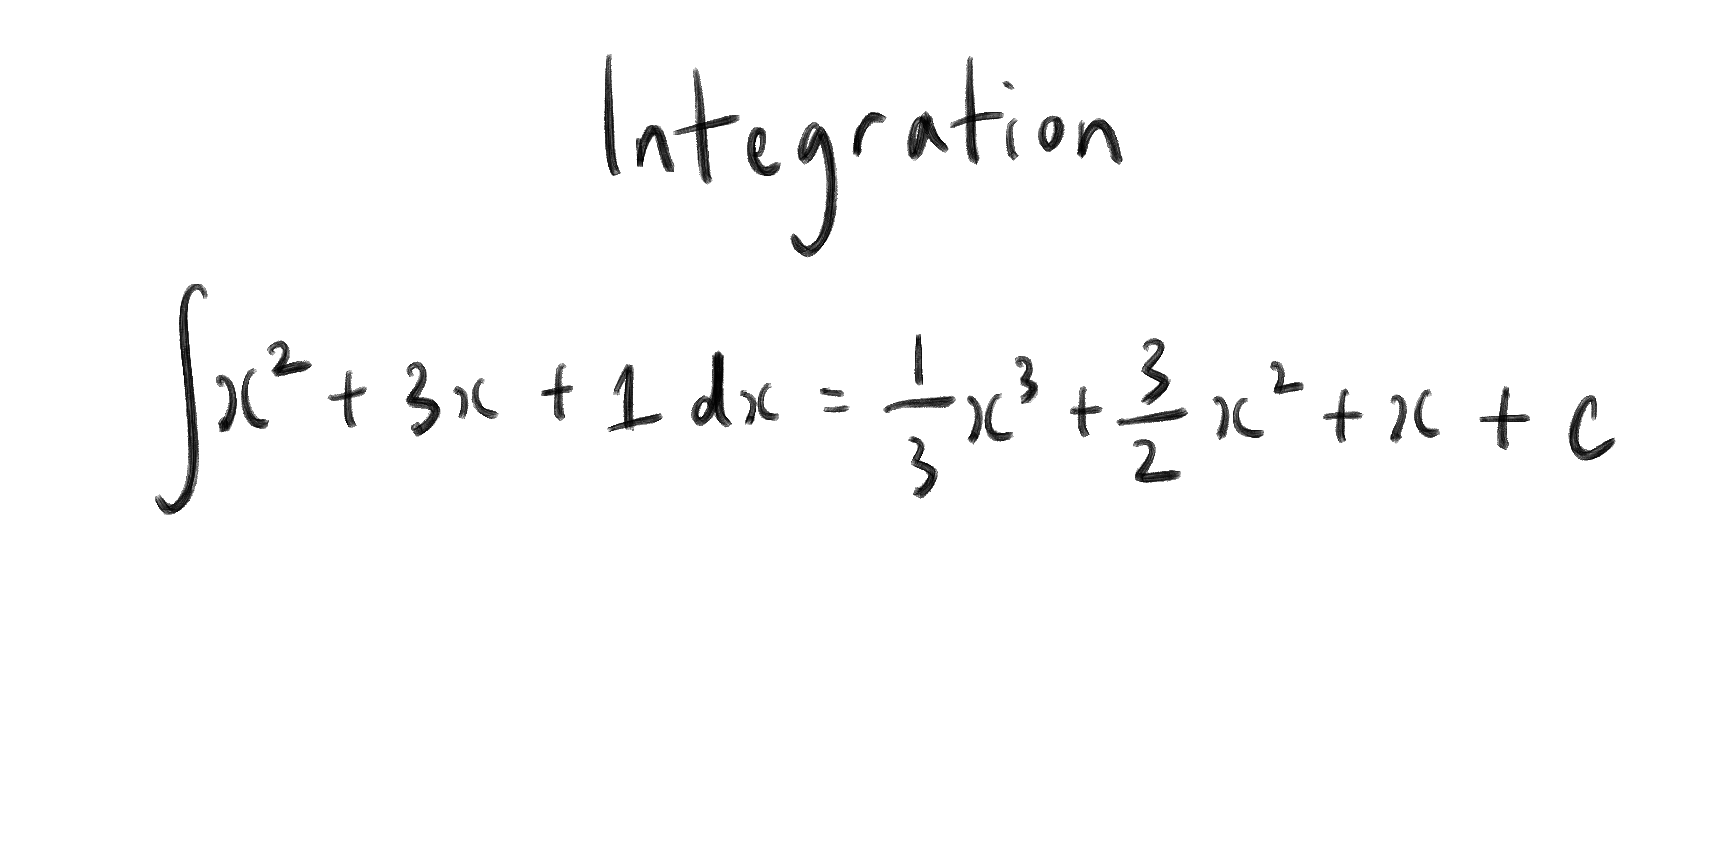 Integration
∫x² + 3x + 1 dx = 1/3 x³ + 3/2 x² + x + c